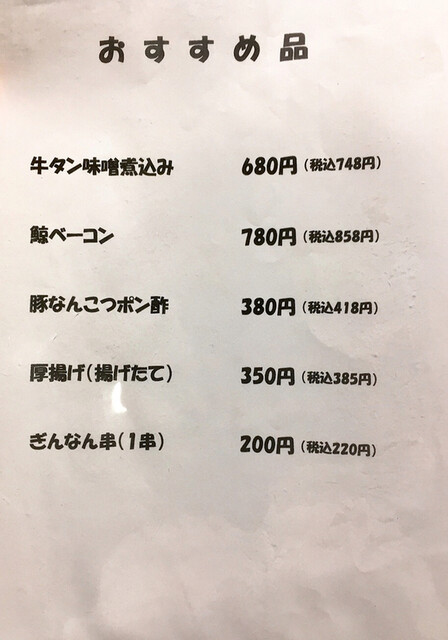 おすすめ品
牛タン味噌煮込み 680円(税込748円)
鯨ベーコン 780円(税込858円)
豚なんこつポン酢 380円(税込418円)
厚揚げ(揚げたて) 350円(税込385円)
ぎんなん串(1串) 200円(税込220円)